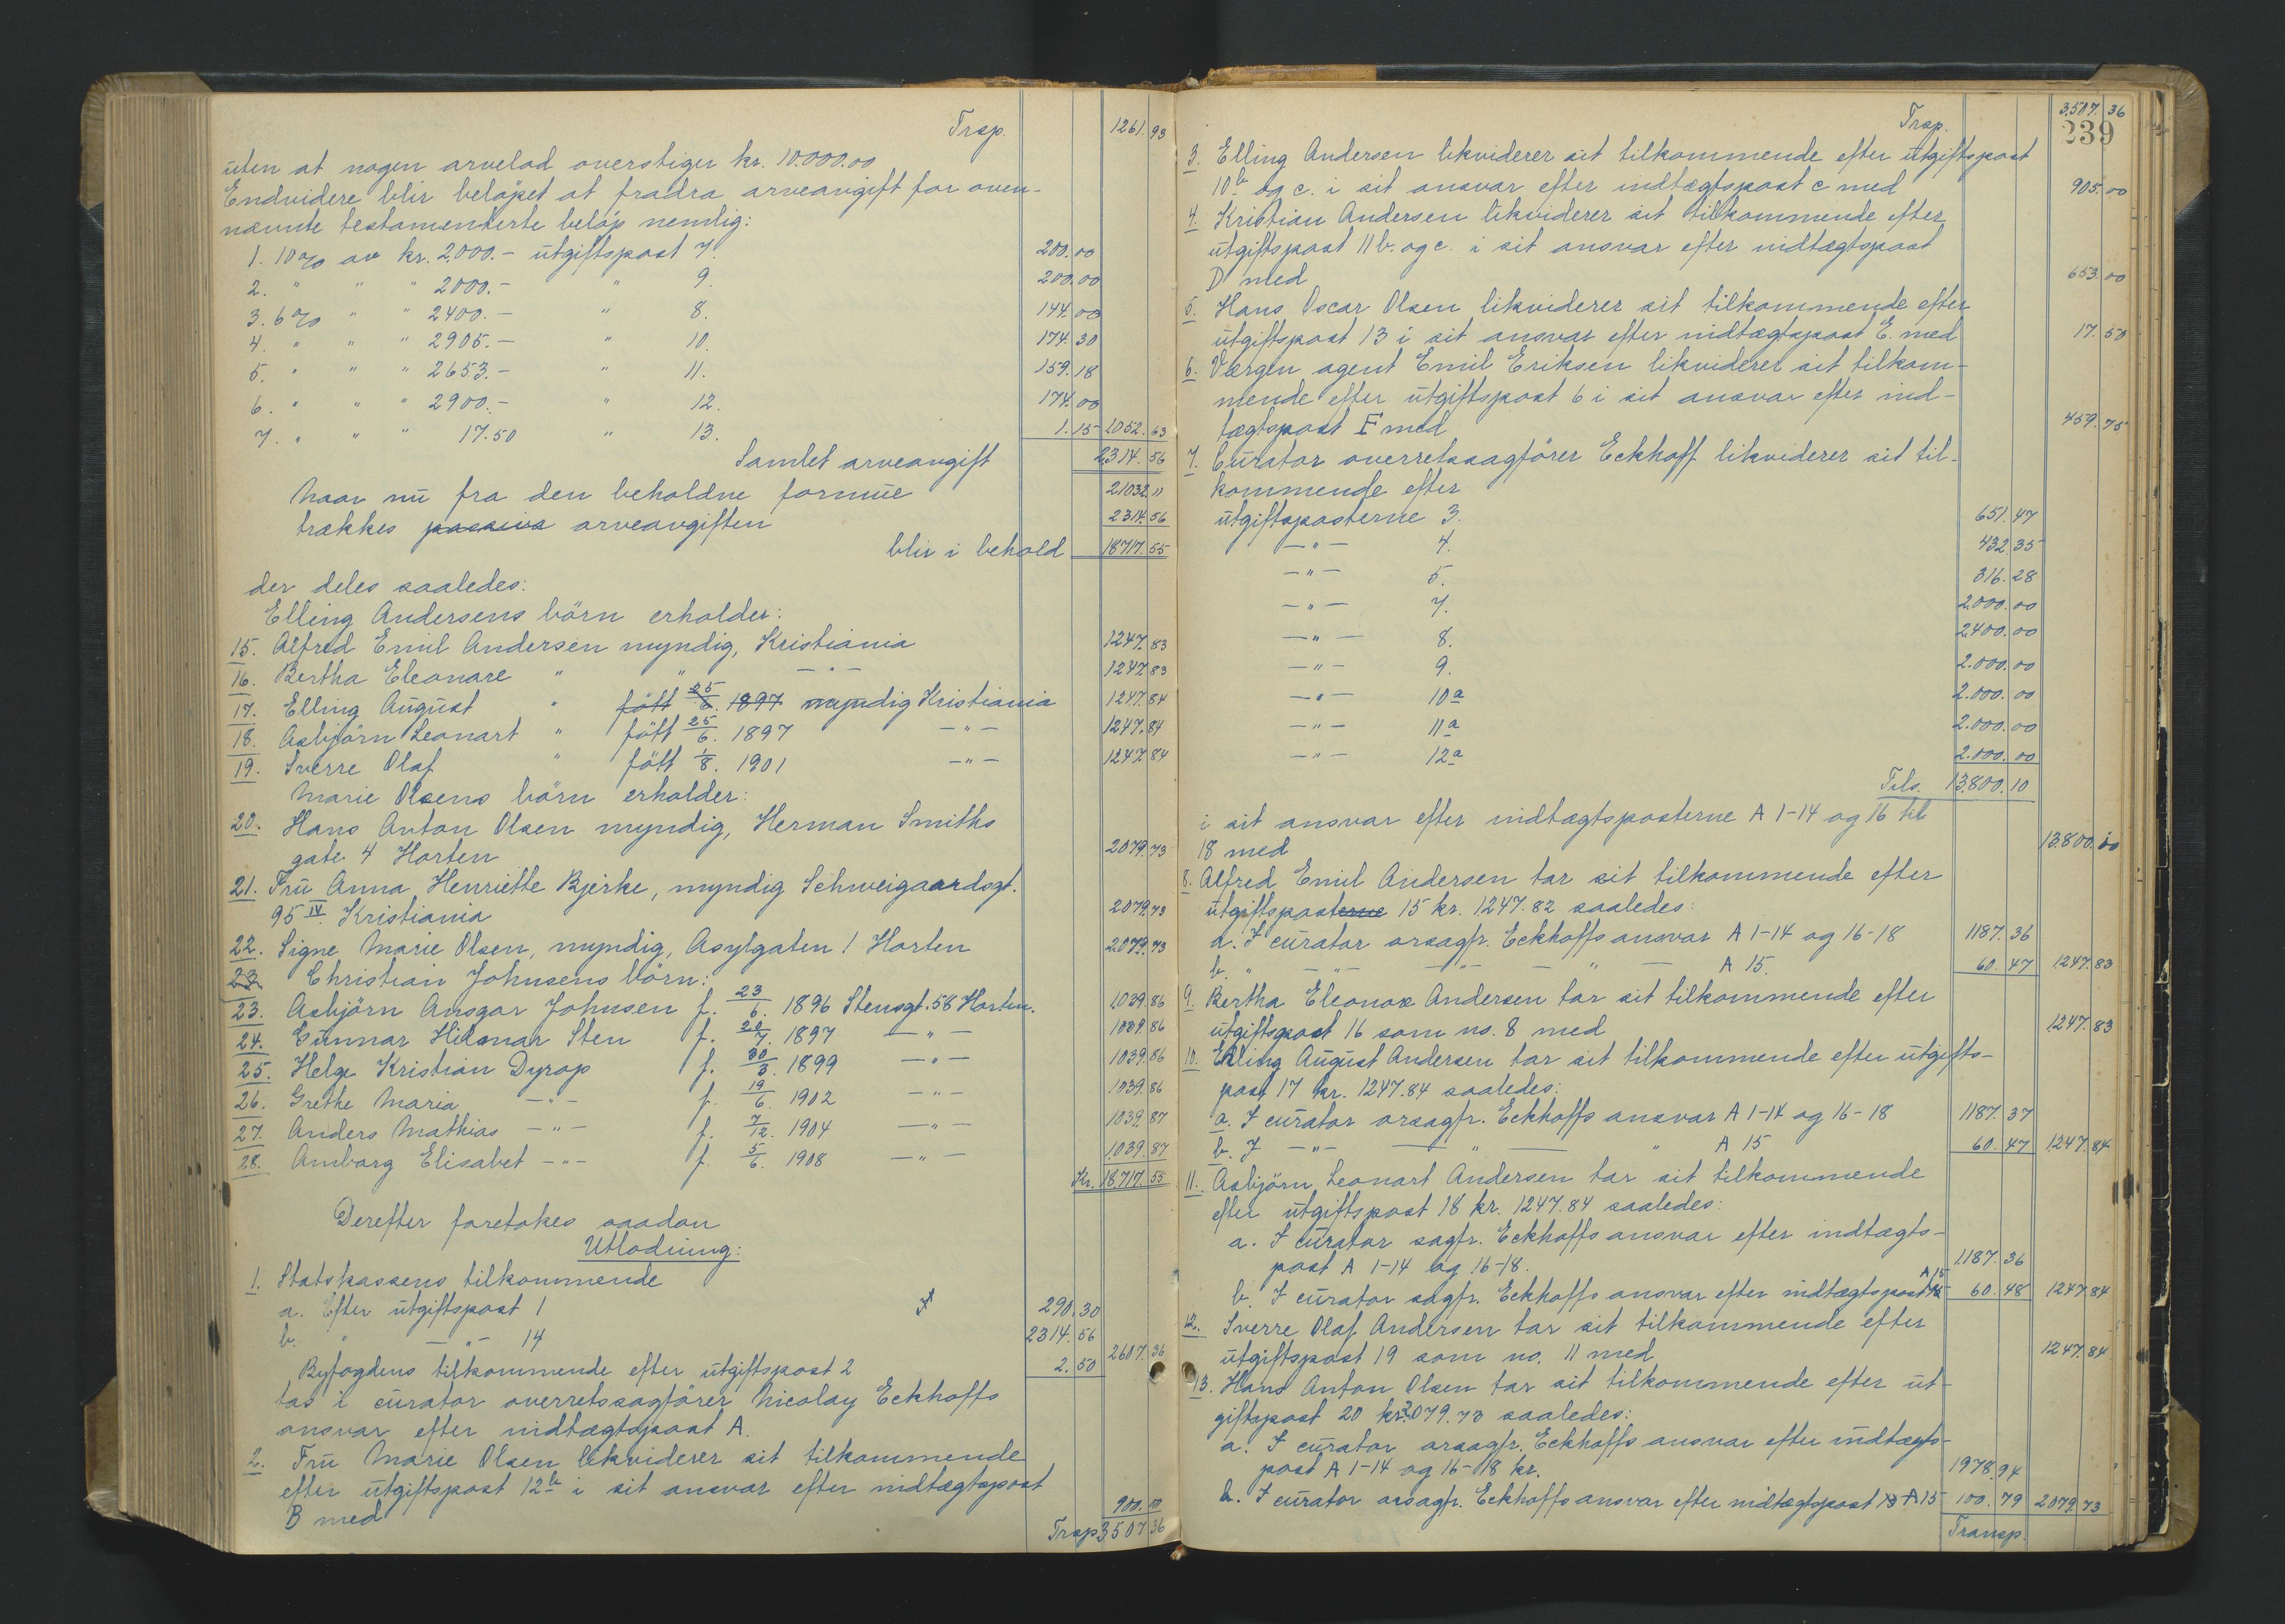 Trsp. 1261.93
uten at nogen arvelod overstiger kr. 10.000.00
Endvidere blir beløpet at fradra arveavgift for oven-
nævnte testamenterte beløp nemlig:
1. 10% av kr. 2.000.- utgiftspost 7. 200.00
2. " " " 2000.- " 9. 200.00
3. 6% " " 2400.- " 8. 144.00
4. " " " 2905.- " 10. 174.30
5. " " " 2653.- " 11. 159.18
6. " " " 2900.- " 12. 174.00
7. " " " 17.50 " 13. 1.15 1052.63
Samlet arveavgift 2314.56
Naar nu fra den beholdne formue 21032.11
trækkes passiva arveavgiften 2314.56
blir i behold 18717.55
der deles saaledes:
Elling Andersens børn erholder:
15. Alfred Emil Andersen myndig, Kristiania 1247.83
16. Bertha Eleonore " " -"- 1247.83
17. Elling August " født 25/6. 1897 myndig Kristiania 1247.84
18. Asbjørn Leonart " født 25/6. 1897 -"- 1247.84
19. Sverre Olaf " født 1/8. 1901 -"- 1247.84
Marie Olsens børn erholder:
20. Hans Anton Olsen myndig, Herman Smiths
gate 4 Horten 2079.73
21. Fru Anna Henriette Bjerke, myndig Schweigaardsgt.
95 IV Kristiania 2079.73
22. Signe Marie Olsen, myndig, Asylgaten 1 Horten 2079.73
23. Christian Johnsens børn:
23. Asbjørn Ansgar Johnsen f. 23/6. 1896 Stensgt. 58 Horten. 1039.86
24. Gunnar Hilmar Sten f. 20/7. 1897 -"- 1039.86
25. Helge Kristian Dyrop f. 30/3. 1899 -"- 1039.86
26. Grethe Maria -"- f. 19/6. 1902 -"- 1039.86
27. Anders Mathias -"- f. 7/12. 1904 -"- 1039.87
28. Amborg Elisabet -"- f. 5/6. 1908 -"- 1039.87
Kr. 18717.55
Derefter foretokes saadan
Utlodning:
1. Statskassens tilkommende
a. Efter utgiftspost 1 290.30
b. " -"- 14 2314.56
Byfogdens tilkommende efter utgiftspost 2 2.50 2607.36
tas i curator overretssagfører Nicolay Eckhoffs
ansvar efter indtægtspost A.
2. Fru Marie Olsen likviderer sit tilkommende
efter utgiftspost 12b i sit ansvar efter indtægtspost
B med 900.00
Trsp 3507.36
Trsp. 3.507.36
239
3. Elling Andersen likviderer sit tilkommende efter utgiftspost
10b og c. i sit ansvar efter indtægtspost c med 905.00
4. Kristian Andersen likviderer sit tilkommende efter
utgiftspost 11b. og c. i sit ansvar efter indtægtspost
D med 653.00
5. Hans Oscar Olsen likviderer sit tilkommende efter
utgiftspost 13 i sit ansvar efter indtægtspost E. med 17.50
6. Værgen agent Emil Eriksen likviderer sit tilkom-
mende efter utgiftspost 6 i sit ansvar efter ind-
tægtspost F med 459.75
7. Curator overretssagfører Eckhoff likviderer sit til-
kommende efter
utgiftsposterne 3. 651.47
-"- 4. 432.35
-"- 5. 316.28
-"- 7. 2.000.00
-"- 8. 2400.00
-"- 9. 2.000.00
-"- 10a 2.000.00
-"- 11a 2.000.00
-"- 12a 2.000.00
Tils. 13.800.10
i sit ansvar efter indtægtsposterne A 1-14 og 16 til
18 med 13.800.10
8. Alfred Emil Andersen tar sit tilkommende efter
utgiftsposterne 15 kr. 1247.82 saaledes:
a. I curator orsagfr. Eckhoffs ansvar A 1-14 og 16-18 1187.36
b. " -"- -"- - " - A 15. 60.47 1247.83
9. Bertha Eleonore Andersen tar sit tilkommende efter
utgiftspost 16 som no. 8 med 1247.83
10. Elling August Andersen tar sit tilkommende efter utgifts-
post 17 kr. 1247.84 saaledes:
a. I curator orsagfr. Eckhoffs ansvar A 1-14 og 16-18 1187.37
b. I -"- " " A 15 60.47 1247.84
11. Asbjørn Leonart Andersen tar sit tilkommende
efter utgiftspost 18 kr. 1247.84 saaledes:
a. I curator sagfr. Eckhoffs ansvar efter indtægts-
post A 1-14 og 16-18. 1187.36
b. I curator sagfr. Eckhoffs ansvar efter indtægtspost A 15 60.48 1247.84
12. Sverre Olaf Andersen tar sit tilkommende efter
utgiftspost 19 som no. 11 med 1247.84
13. Hans Anton Olsen tar sit tilkommende efter ut-
giftspost 20 kr. 2079.73 saaledes:
a. I curator orsagfr. Eckhoffs ansvar efter indtægts-
post A 1-14 og 16-18 kr. 1978.94
b. I curator orsagfr. Eckhoffs ansvar efter indtægtspost A 15 100.79 2079.73
Transp.